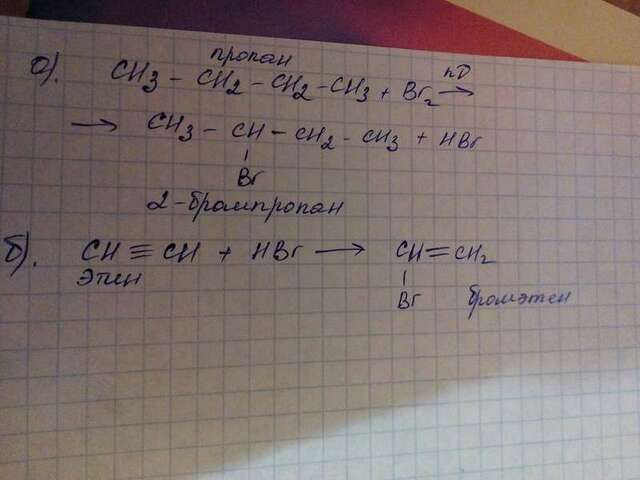 а).
пропан
CH3 - CH2 - CH2 - CH3 + Br2 hD →
→ CH3 - CH - CH2 - CH3 + HBr
Br
2-бромпропан
б). CH ≡ CH + HBr → CH = CH2
Br
бромэтен